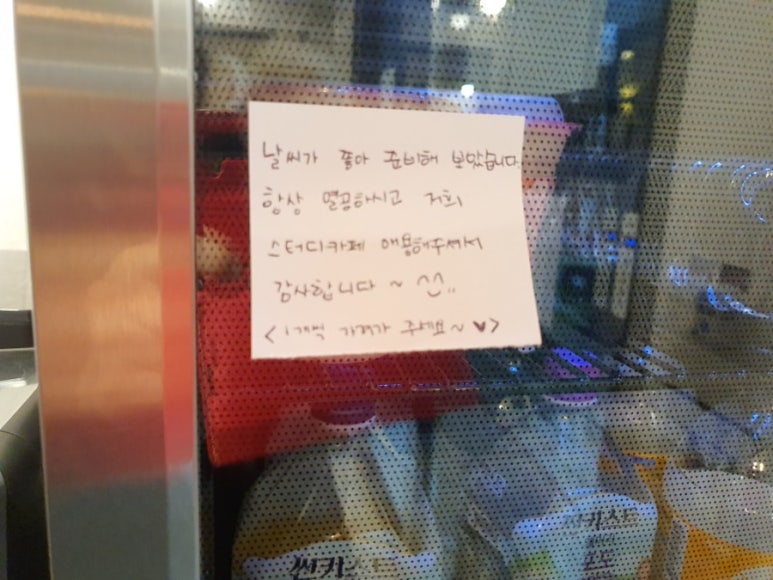 날씨가 좋아 준비해 보았습니다
항상 열공하시고 저희
스터디카페 애용해주셔서
감사합니다 ~ ^^,,
<1개씩 가져가 주세요~ ♥>
썬키스트
포도
썬키